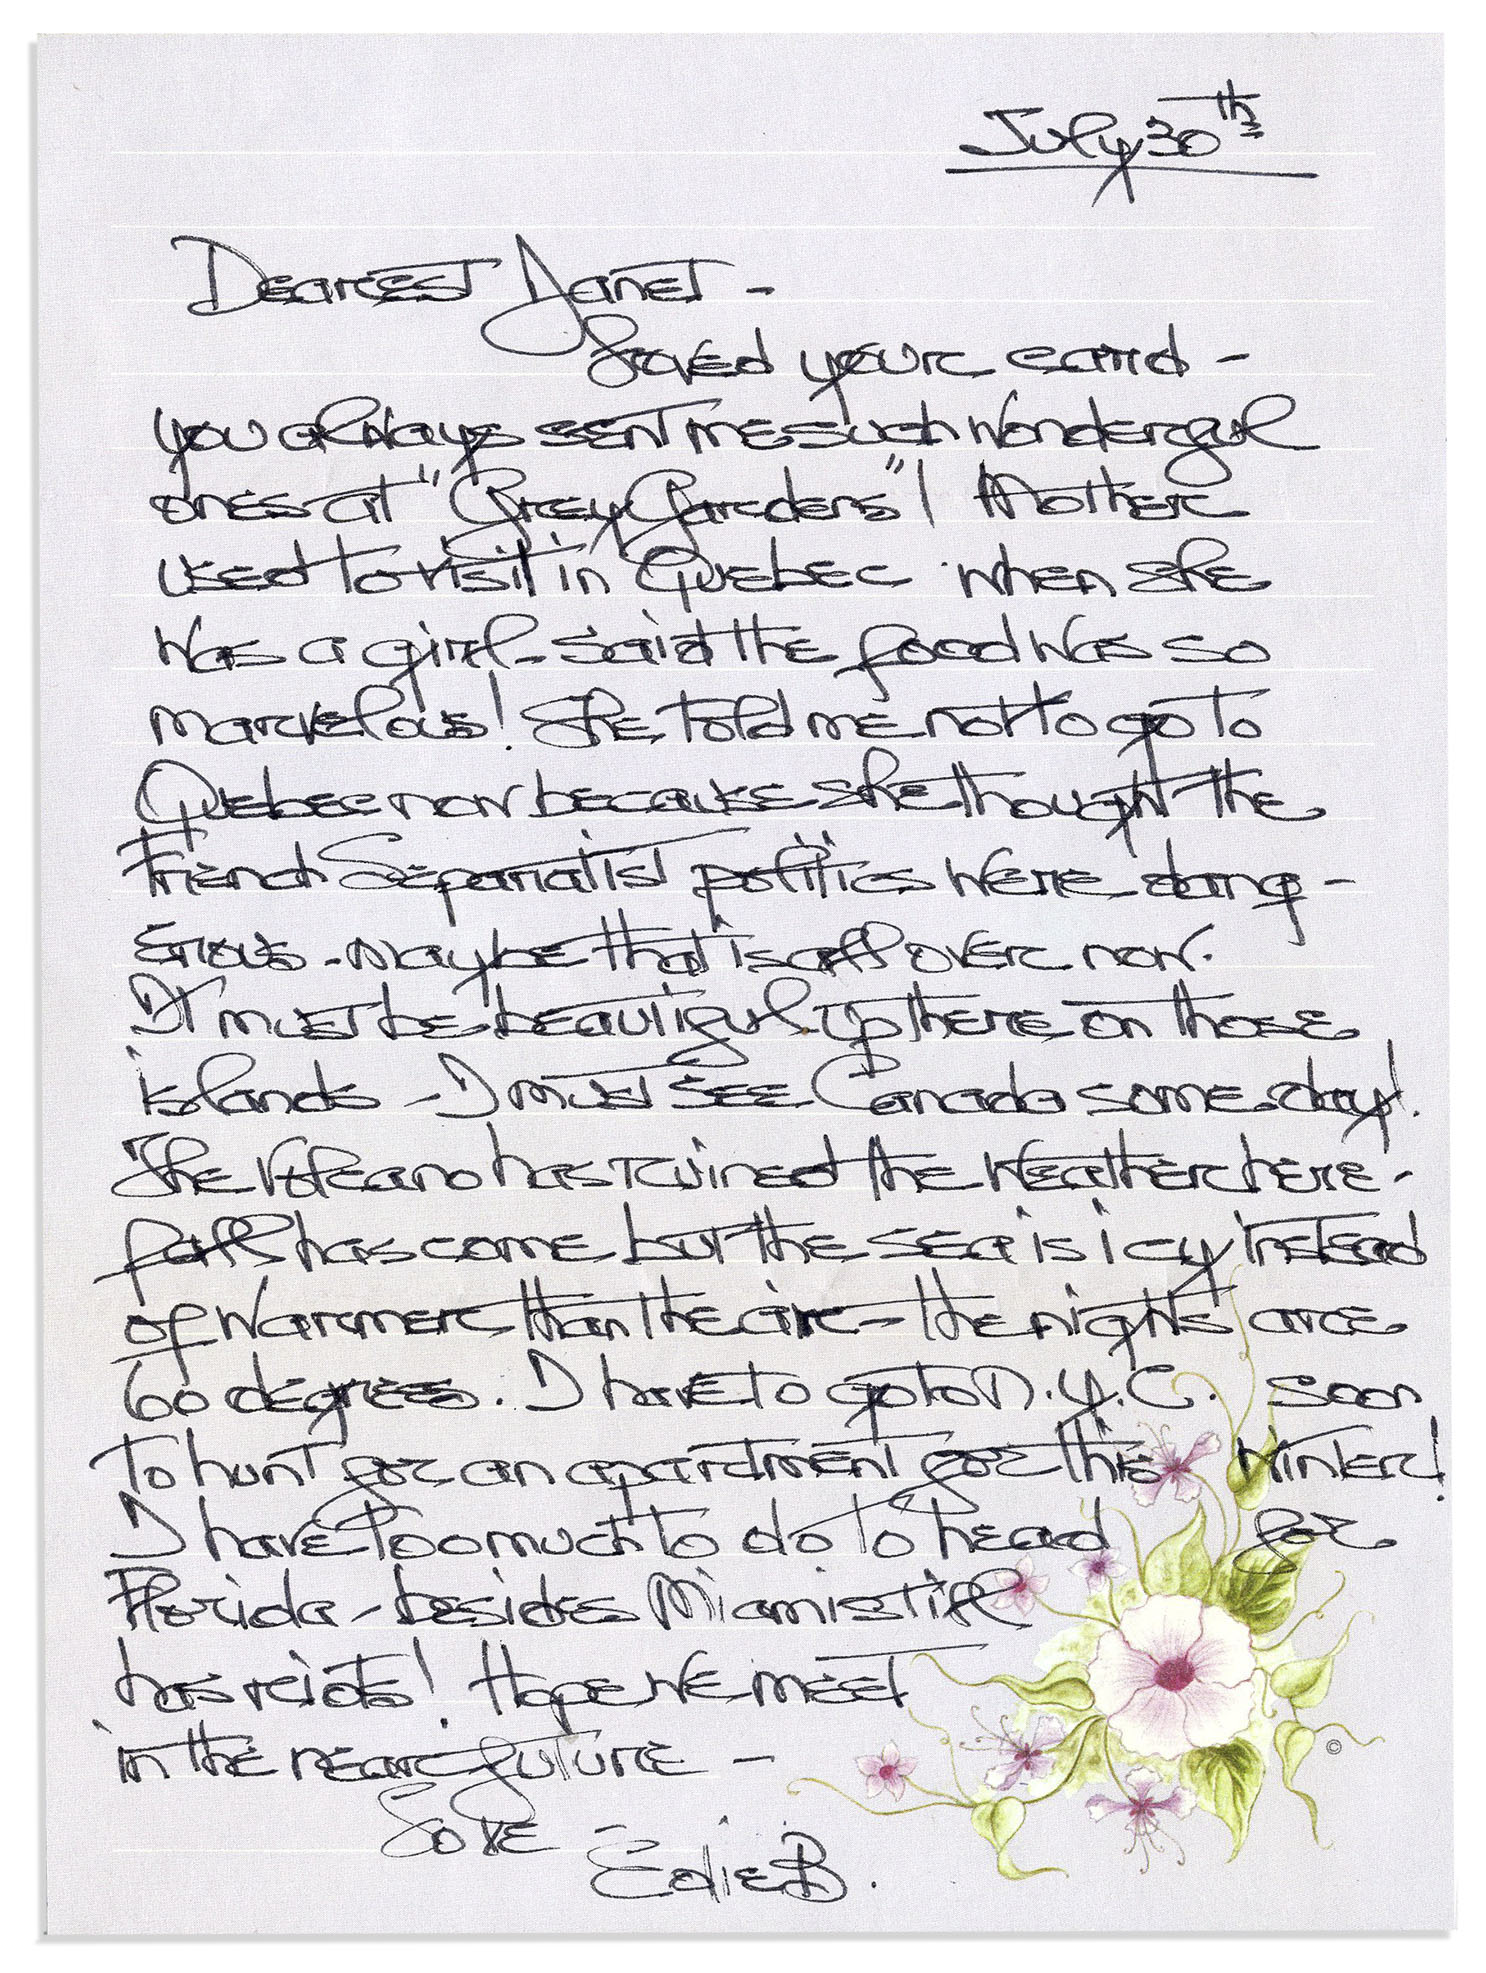 July 30th
Dearest Janet -
Loved your card -
you always sent me such wonderful
ones at "Grey Gardens"! Mother
used to visit in Quebec when she
was a girl - said the food was so
marvelous! She told me not to go to
Quebec now because she thought the
French Separatist politics were dang -
erous - maybe that is all over now.
It must be beautiful up there on those
islands - I must see Canada some day!
The Volcano has ruined the weather here -
fall has come but the sea is icy instead
of warmer than the air - the nights are
60 degrees. I have to go to N.Y.C. soon
to hunt for an apartment for this winter!
I have too much to do to head for
Florida - besides Miami still
has riots! Hope we meet
in the near future -
Love -
Edie B.
©